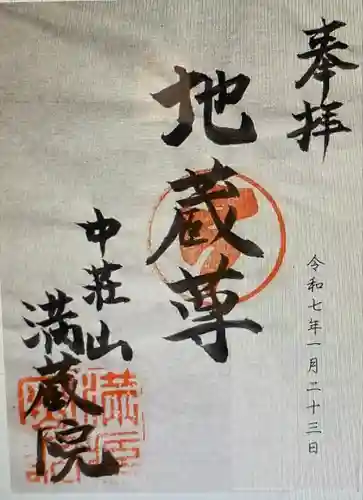 奉拝
令和七年一月二十三日
地蔵尊
中荘山
満蔵院